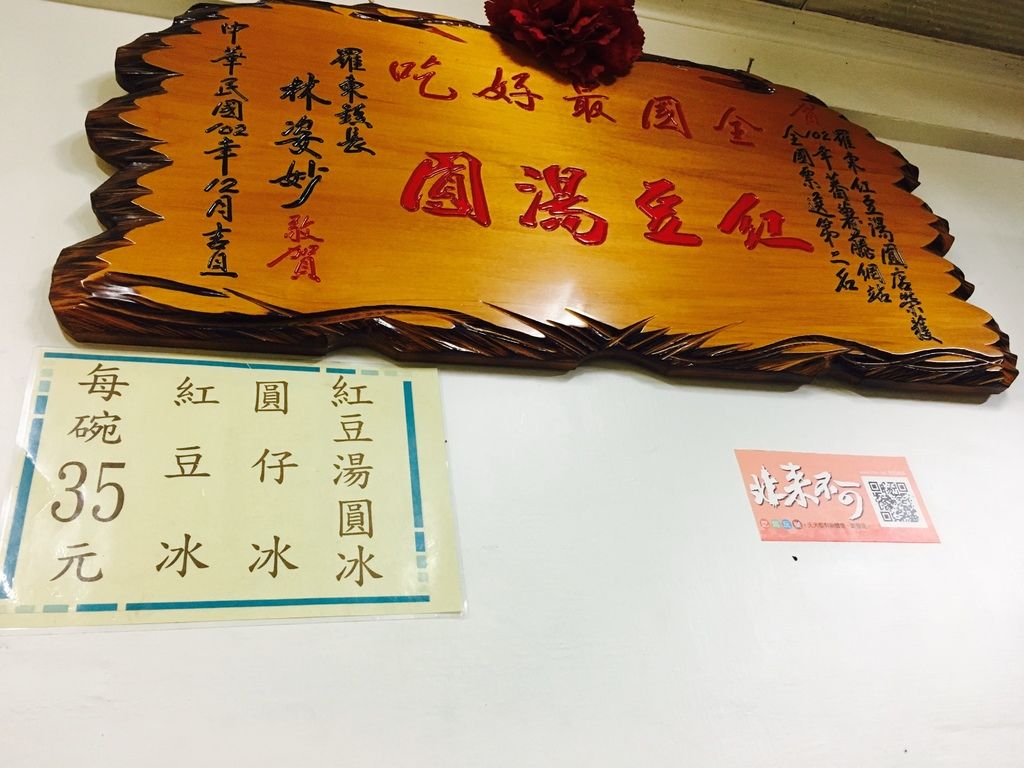 賀
羅東紅豆湯圓店榮獲
102年蕃薯藤網站
全國票選第二名
全國最好吃
紅豆湯圓
羅東鎮長
林姿妙
敬賀
中華民國102年12月吉旦
紅豆湯圓冰
圓仔冰
紅豆冰
每碗35元
非來不可